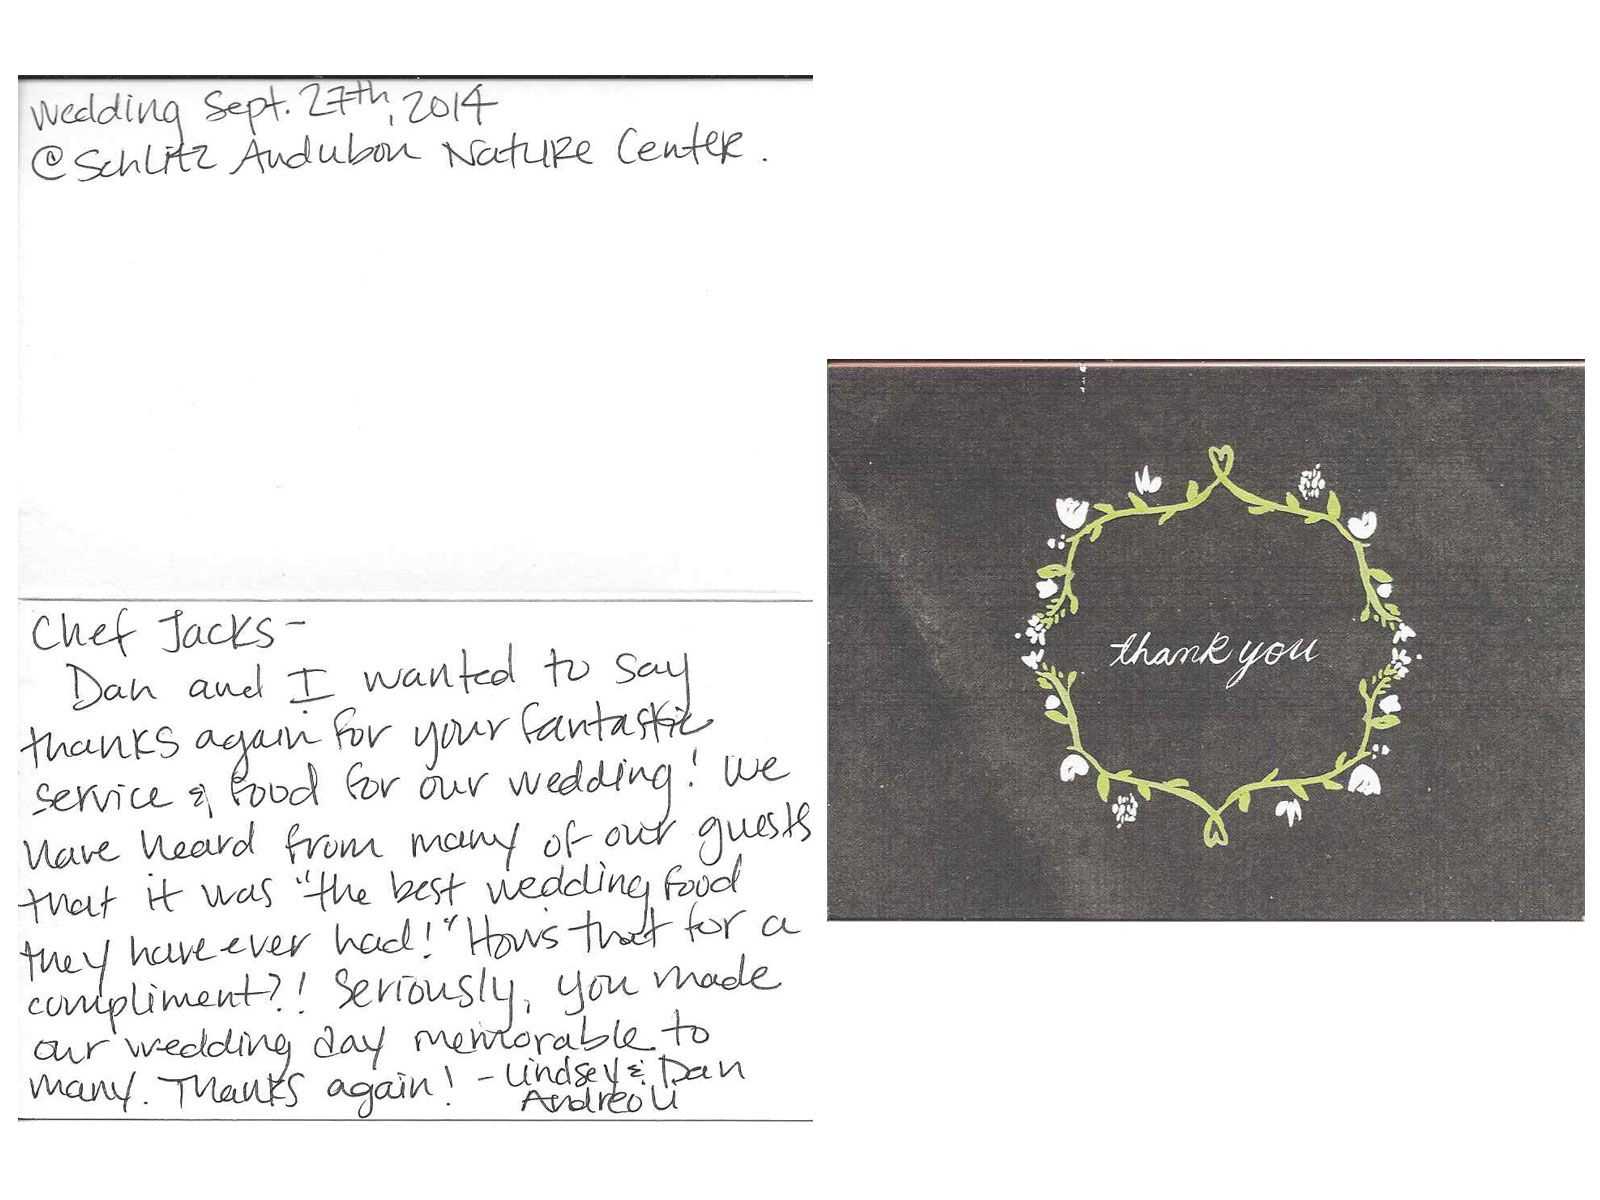 Wedding Sept. 27th, 2014
@ Schlitz Audubon Nature Center.
Chef Jacks-
Dan and I wanted to say
thanks again for your fantastic
service & food for our wedding! We
have heard from many of our guests
that it was "the best wedding food
they have ever had!" How's that for a
compliment?! Seriously, you made
our wedding day memorable to
many. Thanks again! - Lindsey & Dan
Andreoli
thank you